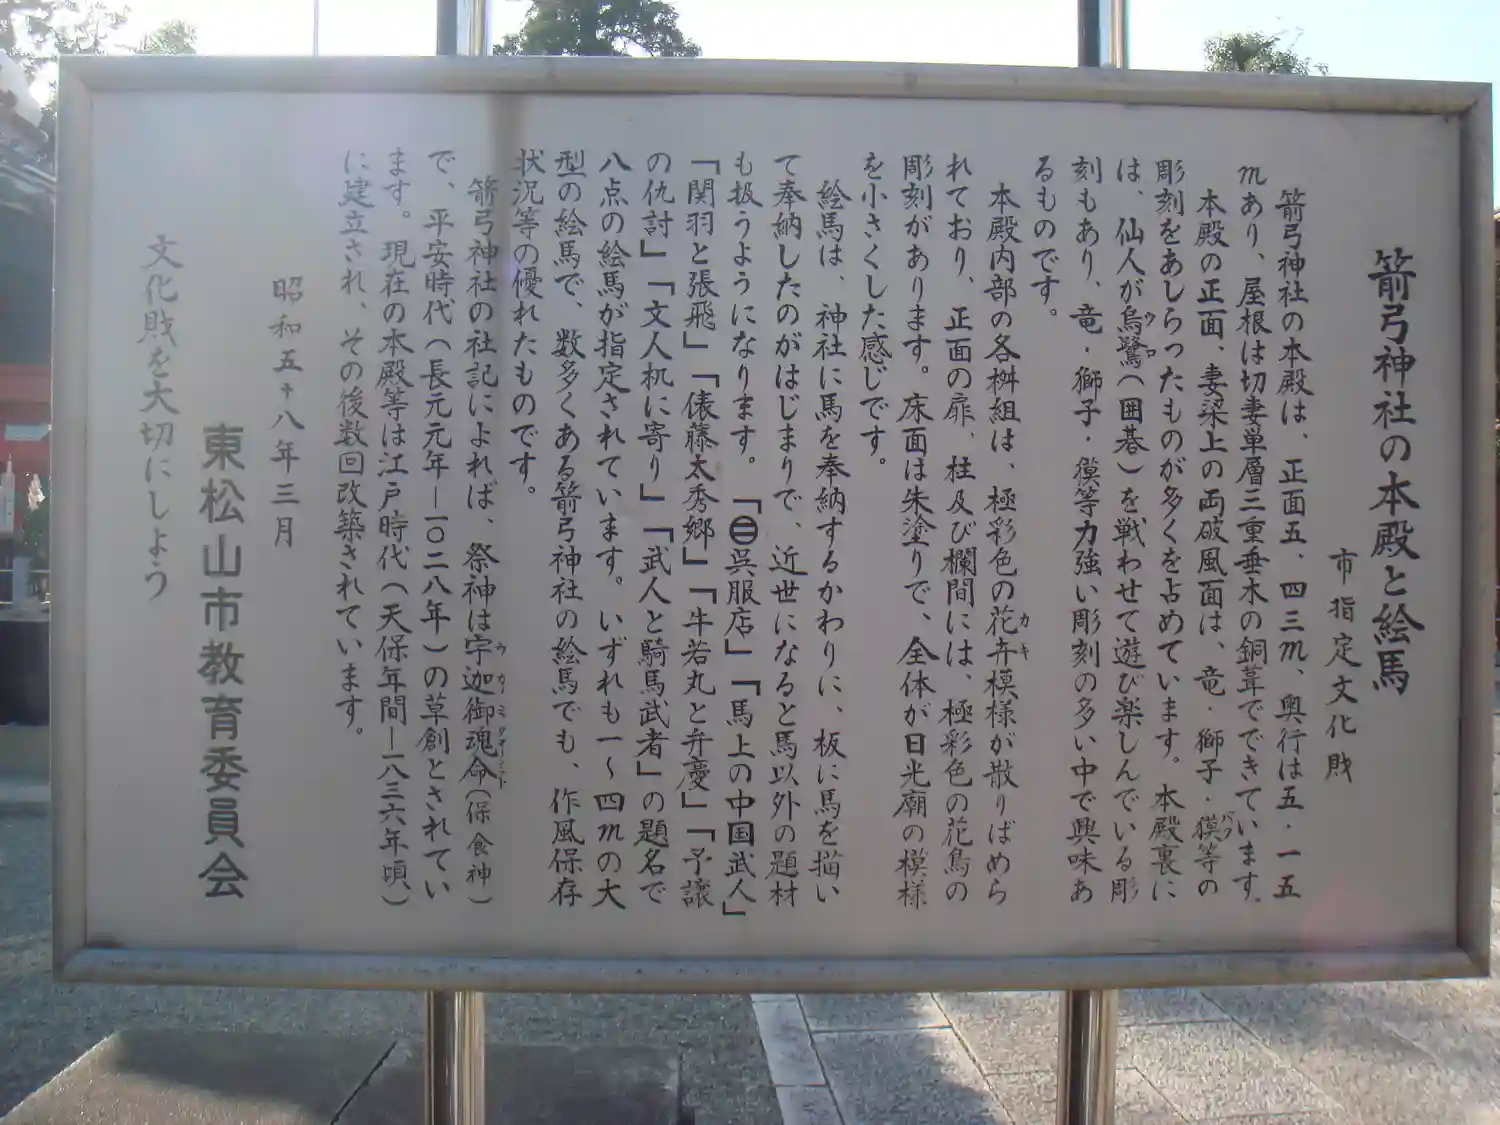 箭弓神社の本殿と絵馬
市指定文化財
箭弓神社の本殿は、正面五、四三m、奥行は五・一五
mあり、屋根は切妻単層三重垂木の銅葺でできています。
本殿の正面、妻梁上の両破風面は、竜・獅子・獏等の
彫刻をあしらったものが多くを占めています。本殿裏に
は、仙人が烏鷺(囲碁)を戦わせて遊び楽しんでいる彫
刻もあり、竜・獅子・獏等力強い彫刻の多い中で興味あ
るものです。
本殿内部の各桝組は、極彩色の花卉模様が散りばめら
れており、正面の扉、柱及び欄間には、極彩色の花鳥の
彫刻があります。床面は朱塗りで、全体が日光廟の模様
を小さくした感じです。
絵馬は、神社に馬を奉納するかわりに、板に馬を描い
て奉納したのがはじまりで、近世になると馬以外の題材
も扱うようになります。「㊁呉服店」「馬上の中国武人」
「関羽と張飛」「俵藤太秀郷」「牛若丸と弁慶」「予譲
の仇討」「文人机に寄り」「武人と騎馬武者」の題名で
八点の絵馬が指定されています。いずれも一〜四mの大
型の絵馬で、数多くある箭弓神社の絵馬でも、作風保存
状況等の優れたものです。
箭弓神社の社記によれば、祭神は宇迦御魂命(保食神)
で、平安時代(長元元年―一〇二八年)の草創とされてい
ます。現在の本殿等は江戸時代(天保年間―一八三六年頃、)
に建立され、その後数回改築されています。
昭和五十八年三月
東松山市教育委員会
文化財を大切にしよう